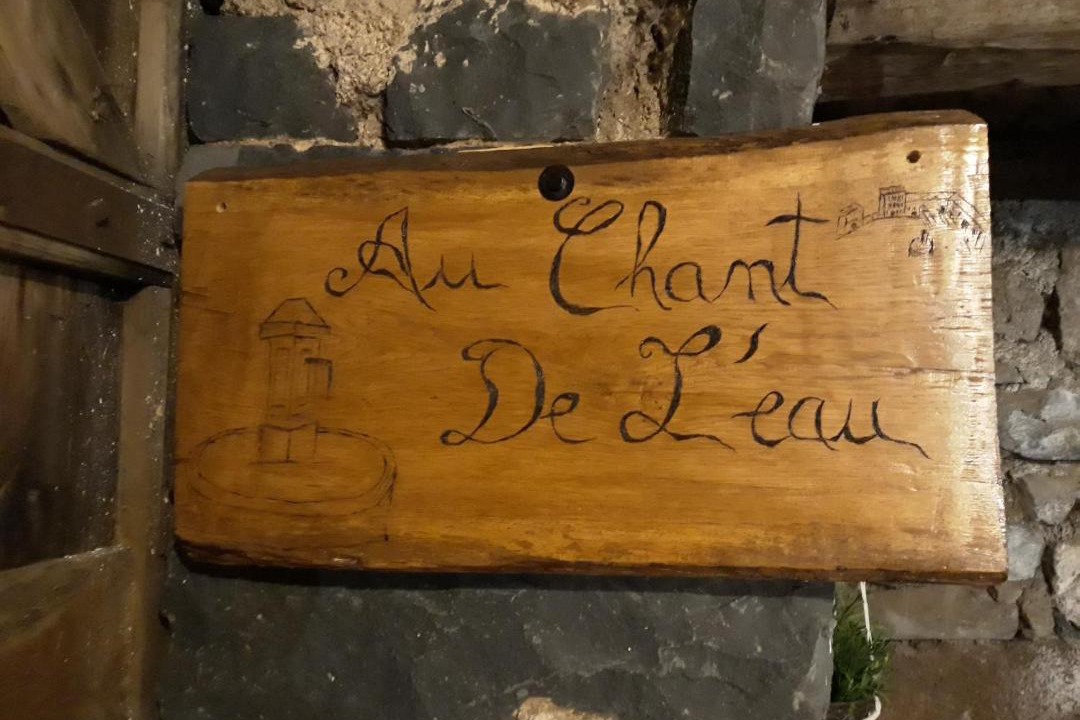 Au Chant
De L'eau